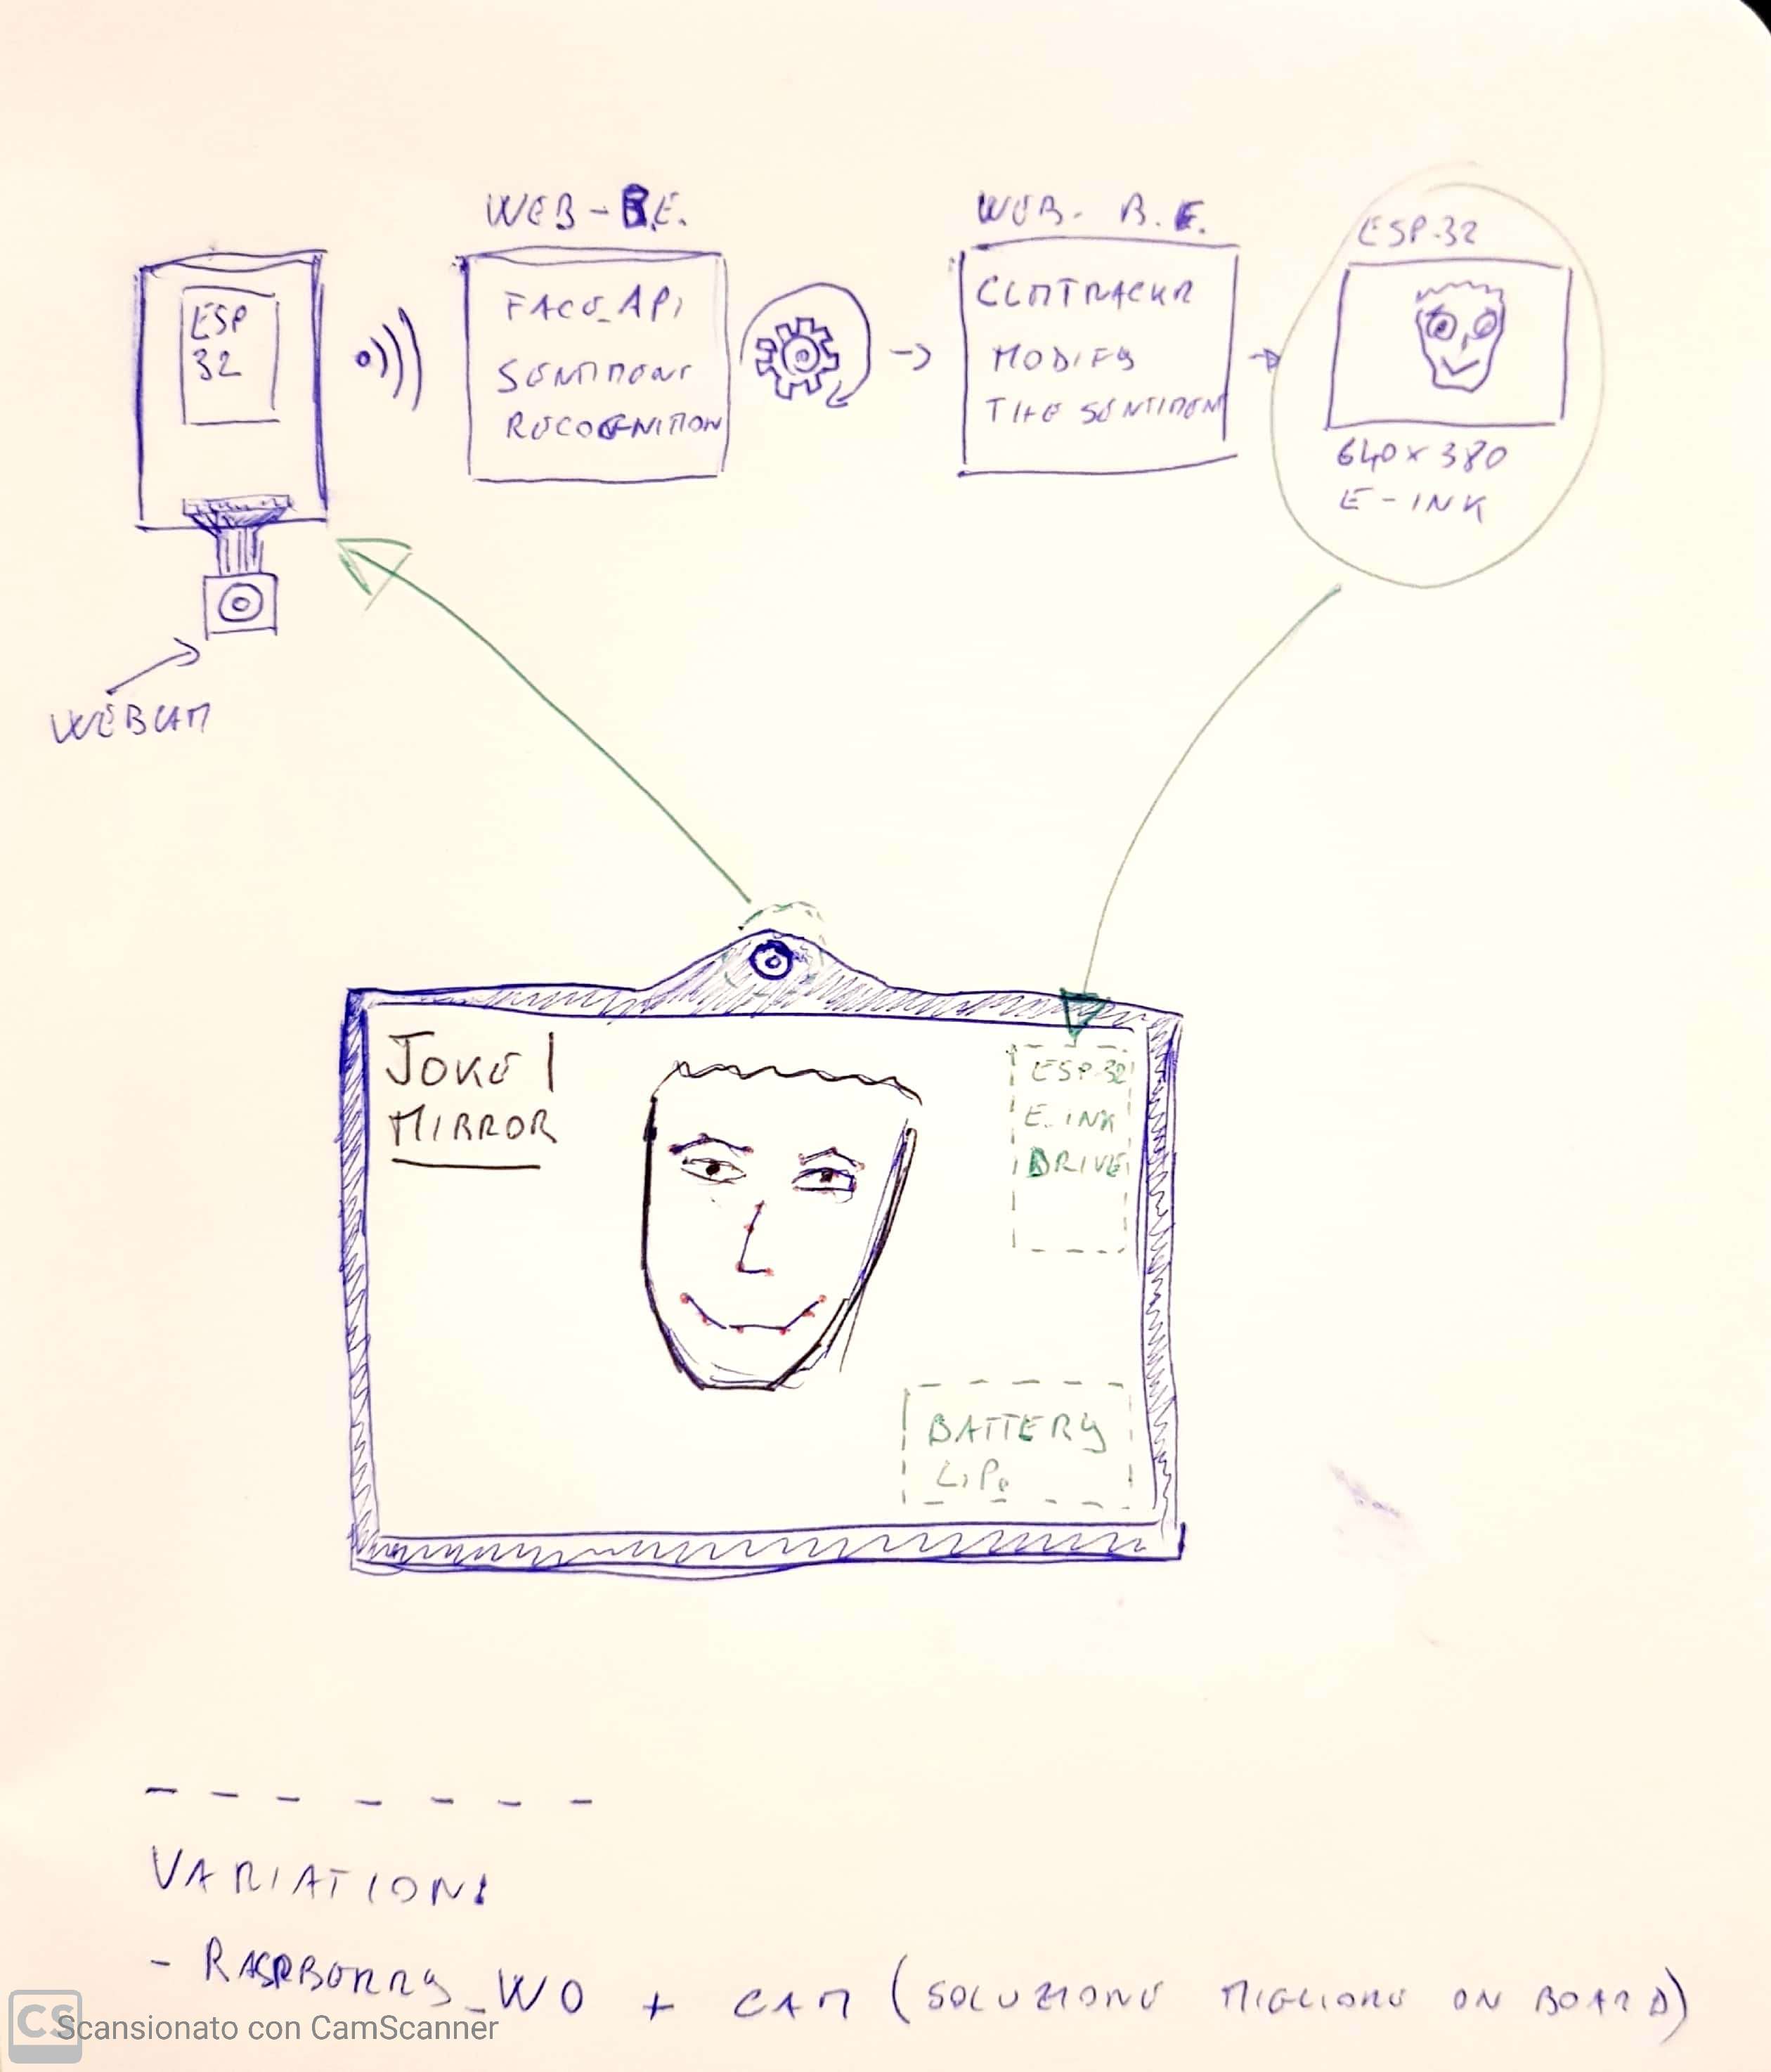 WEB-B.E.
WEB-B.E.
ESP-32
ESP
32
FACE_API
SENTIMENT
RECOGNITION
CLMTRACKR
MODIFY
THE SENTIMENT
640x380
E-INK
WEBCAM
JOKE!
MIRROR
ESP-32
E-INK
DRIVE
BATTERY
LiPo
VARIATION:
- RASPBERRY_W0 + CAM (SOLUZIONE MIGLIORE ON BOARD)
CS
Scansionato con CamScanner